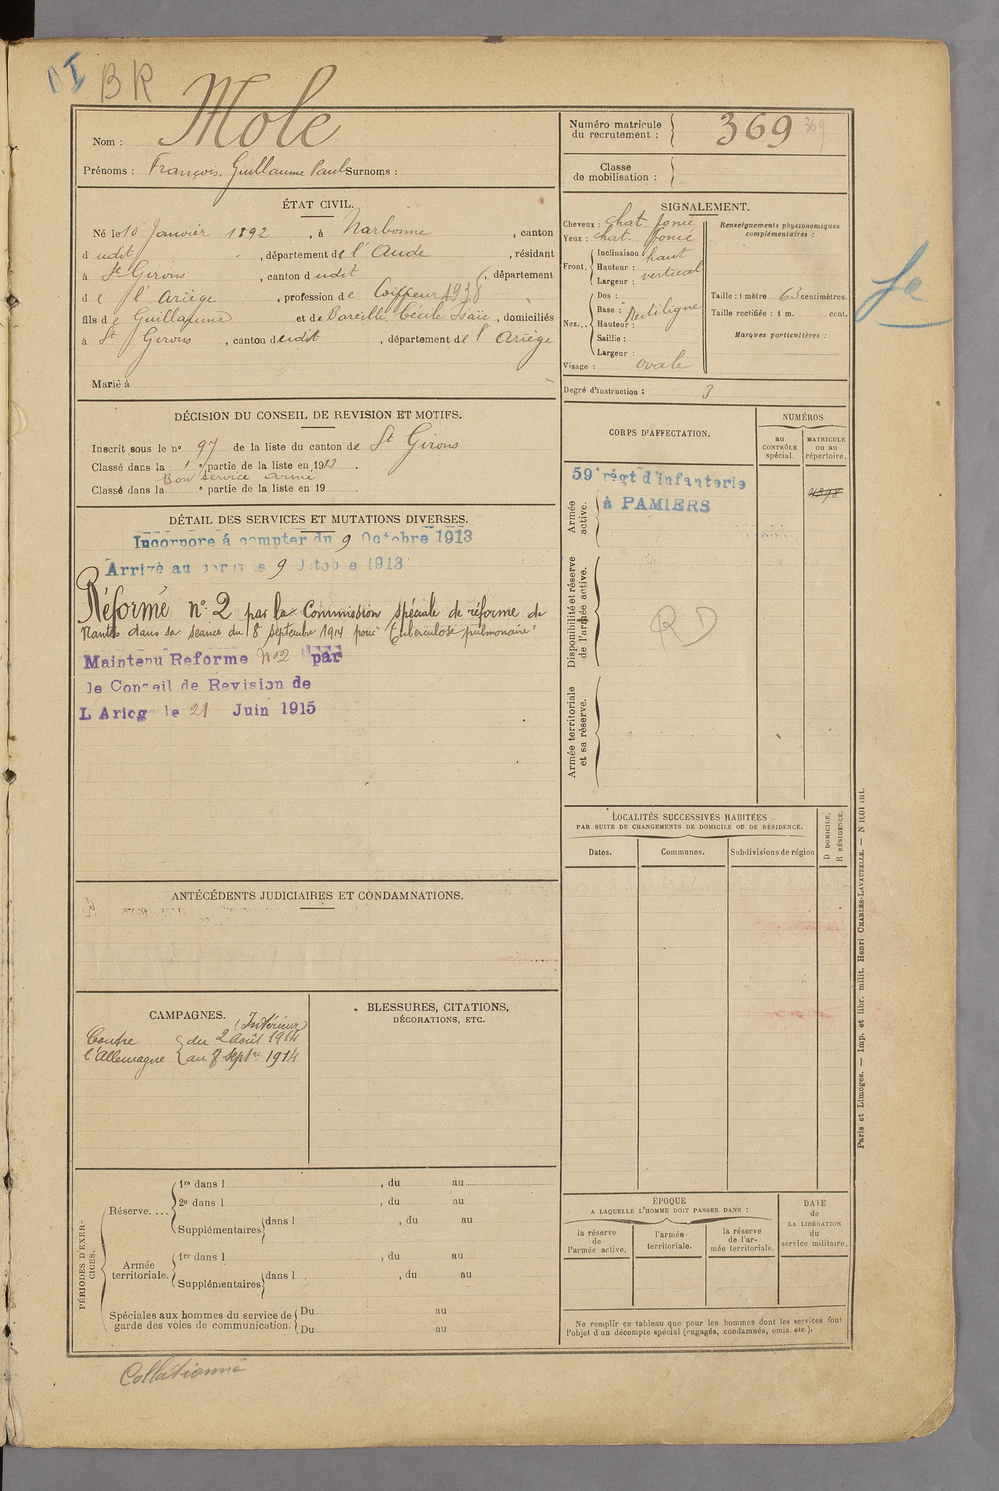 BR
Mole
Nom :
Prénoms : François, Guillaume Paul Surnoms :
Numéro matricule du recrutement : 369
369
Classe de mobilisation :
ÉTAT CIVIL.
Né le 10 Janvier 1892, à Narbonne, canton
dudit, département de l'Aude, résidant
à St Girons, canton dudit, département
de l'Ariège, profession de Coiffeur
fils de Guillaume et de Cécile, domiciliés
à St Girons, canton dudit, département de l'Ariège
Marié à
SIGNALEMENT.
Cheveux : chat. foncé
Yeux : chat. foncé
Front. Inclinaison : haut
Hauteur : vertical
Largeur :
Nez... Dos : Rectiligne
Base :
Hauteur :
Saillie :
Largeur :
Visage : ovale
Renseignements physionomiques complémentaires :
Taille : 1 mètre 63 centimètres.
Taille rectifiée : 1 m. cent.
Marques particulières :
Degré d'instruction : 3
DÉCISION DU CONSEIL DE REVISION ET MOTIFS.
Inscrit sous le nº 97 de la liste du canton de St Girons
Classé dans la 1e partie de la liste en 1913.
Bon service armé
Classé dans la e partie de la liste en 19
CORPS D'AFFECTATION.
NUMÉROS
au CONTRÔLE spécial.
MATRICULE ou au répertoire.
Armée active.
59e régt d'infanterie
à PAMIERS
Disponibilité et réserve de l'armée active.
RD
Armée territoriale et sa réserve.
DÉTAIL DES SERVICES ET MUTATIONS DIVERSES.
Incorporé à compter du 9 Octobre 1913
Arrivé au corps le 9 Octobre 1913
Réformé nº 2 par la Commission spéciale de réforme de
Nantes dans sa séance du 8 septembre 1914 pour "tuberculose pulmonaire"
Maintenu Reforme Nº2 par
le Conseil de Revision de
L Ariege le 21 Juin 1915
LOCALITÉS SUCCESSIVES HABITÉES
PAR SUITE DE CHANGEMENTS DE DOMICILE OU DE RÉSIDENCE.
Dates.
Communes.
Subdivisions de région
D DOMICILE.
R RÉSIDENCE.
ANTÉCÉDENTS JUDICIAIRES ET CONDAMNATIONS.
CAMPAGNES.
(Intérieur)
Contre du 2 Août 1914
l'Allemagne au 7 Septre 1914
BLESSURES, CITATIONS,
DÉCORATIONS, ETC.
PÉRIODES D'EXERCICES.
Réserve....
1re dans l , du au
2e dans l , du au
Supplémentaires dans l , du au
Armée territoriale.
1re dans l , du au
Supplémentaires dans l , du au
Spéciales aux hommes du service de garde des voies de communication.
Du au
Du au
ÉPOQUE
A LAQUELLE L'HOMME DOIT PASSER DANS :
la réserve de l'armée active.
l'armée territoriale.
la réserve de l'armée territoriale.
DATE de LA LIBÉRATION du service militaire.
Ne remplir ce tableau que pour les hommes dont les services font
l'objet d'un décompte spécial (engagés, condamnés, omis. etc.).
Paris et Limoges. — Imp. et libr. milit. Henri CHARLES-LAVAUZELLE. —
Collationné